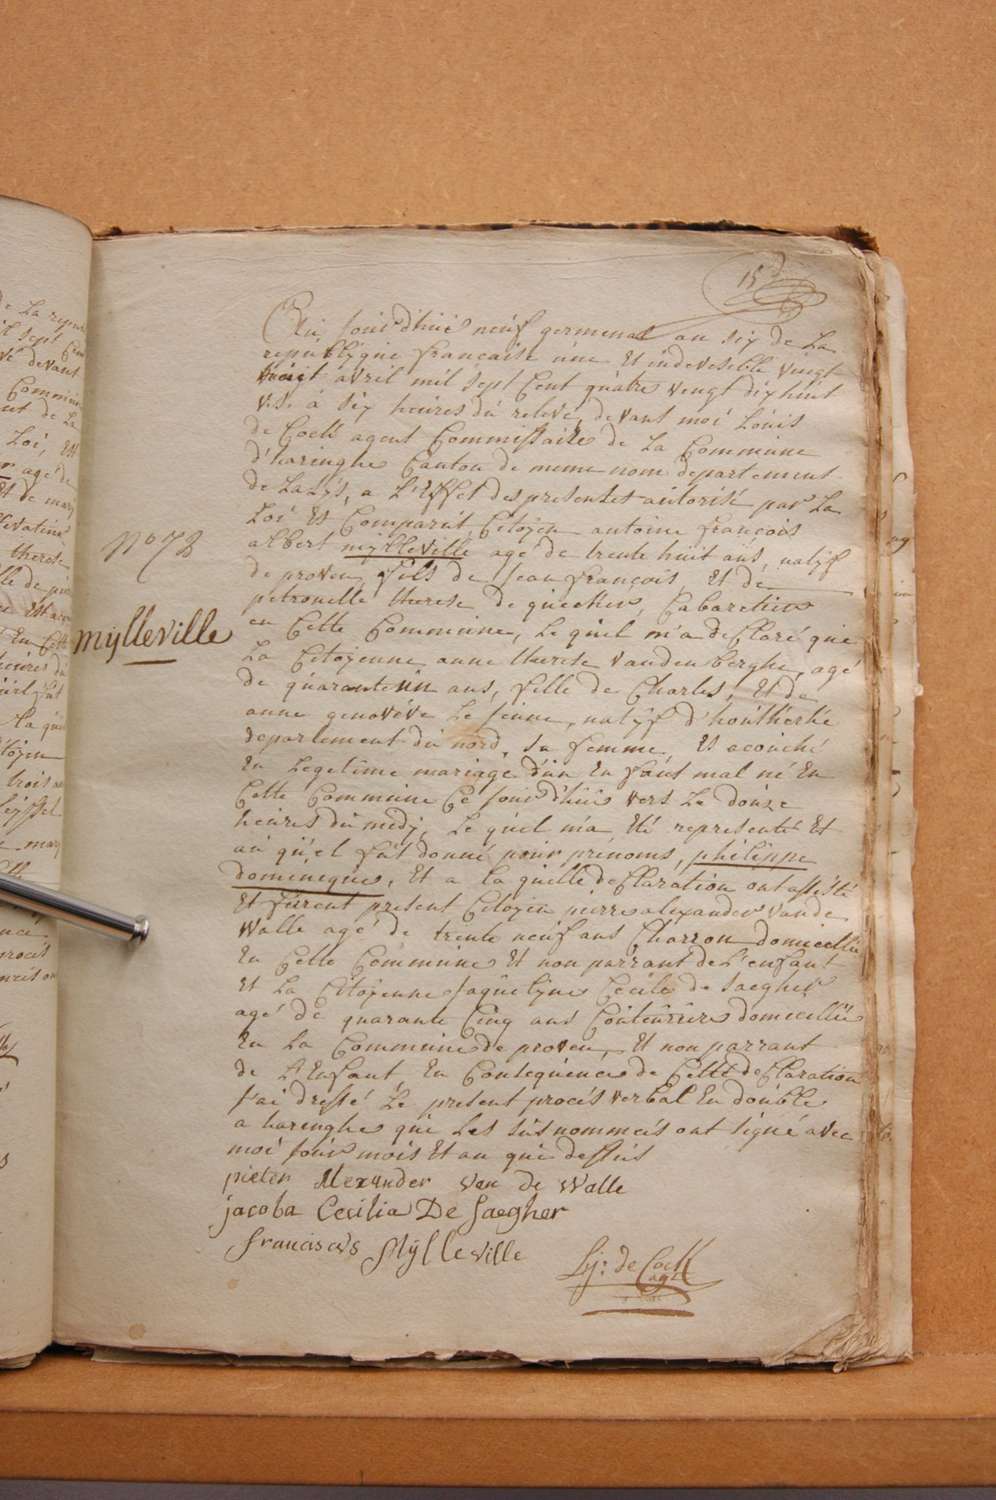 15
Au jourdhui neuf germenal an six de La
republijque françaíse une Et indevesible vingt
huit avril mil sept Cent quatre vingt dix huit
v.s. a six heures du relevé, devant moi Louis
de Cock agent Commissaire de La Commune
d'haringhe Canton de meme nom departement
de La Lÿs, a L'Effet des presentes autorisé par La
Loi Et Comparût Citoyen antoine françois
albert mylleville agé de trente huit ans, natijf
de proven, fils de Jean françois, Et de
petronelle therese de quecker, Cabaretier
en Cette Commune, Le quel m'a declaré que
La Citoÿenne anne therese vandenberghe, agé
de quarante un ans, fille de Charles, Et de
anne genovéve Le Jeune, natijf d'houtkerke
departement du nord, sa femme, Et acouché
En Legetime mariage d'un Enfant mal né En
Cette Commune Ce jourd'hui vers Le douze
heures du medi, Le quel m'a Eté representé Et
au qu'el fût donné pour prénoms, philippe
domineque, Et a la quelle declaration ont assisté
Et furent present Citoÿen pierre alexander vande
Walle agé de trente neuf ans Charron domicellié
En Cette Commune Et non parrant de L'enfant
Et La Citoÿenne Jaquelÿne Cecile de Saegher
agé de quarante Cinq ans Couteuriere domicelliée
En La Commune de proven, Et non parrant
de L'Enfant En Consequence de Cette declaration
J'ai dressé Le present procés verbal En double
a haringhe que Les susnommés ont signé avec
moi jour mois Et an que dessus
N° 78
mÿlleville
pieter Alexander van de Walle
jacoba Cecilia De Saegher
franciscus Mÿlleville
Lj: de Cock
agt